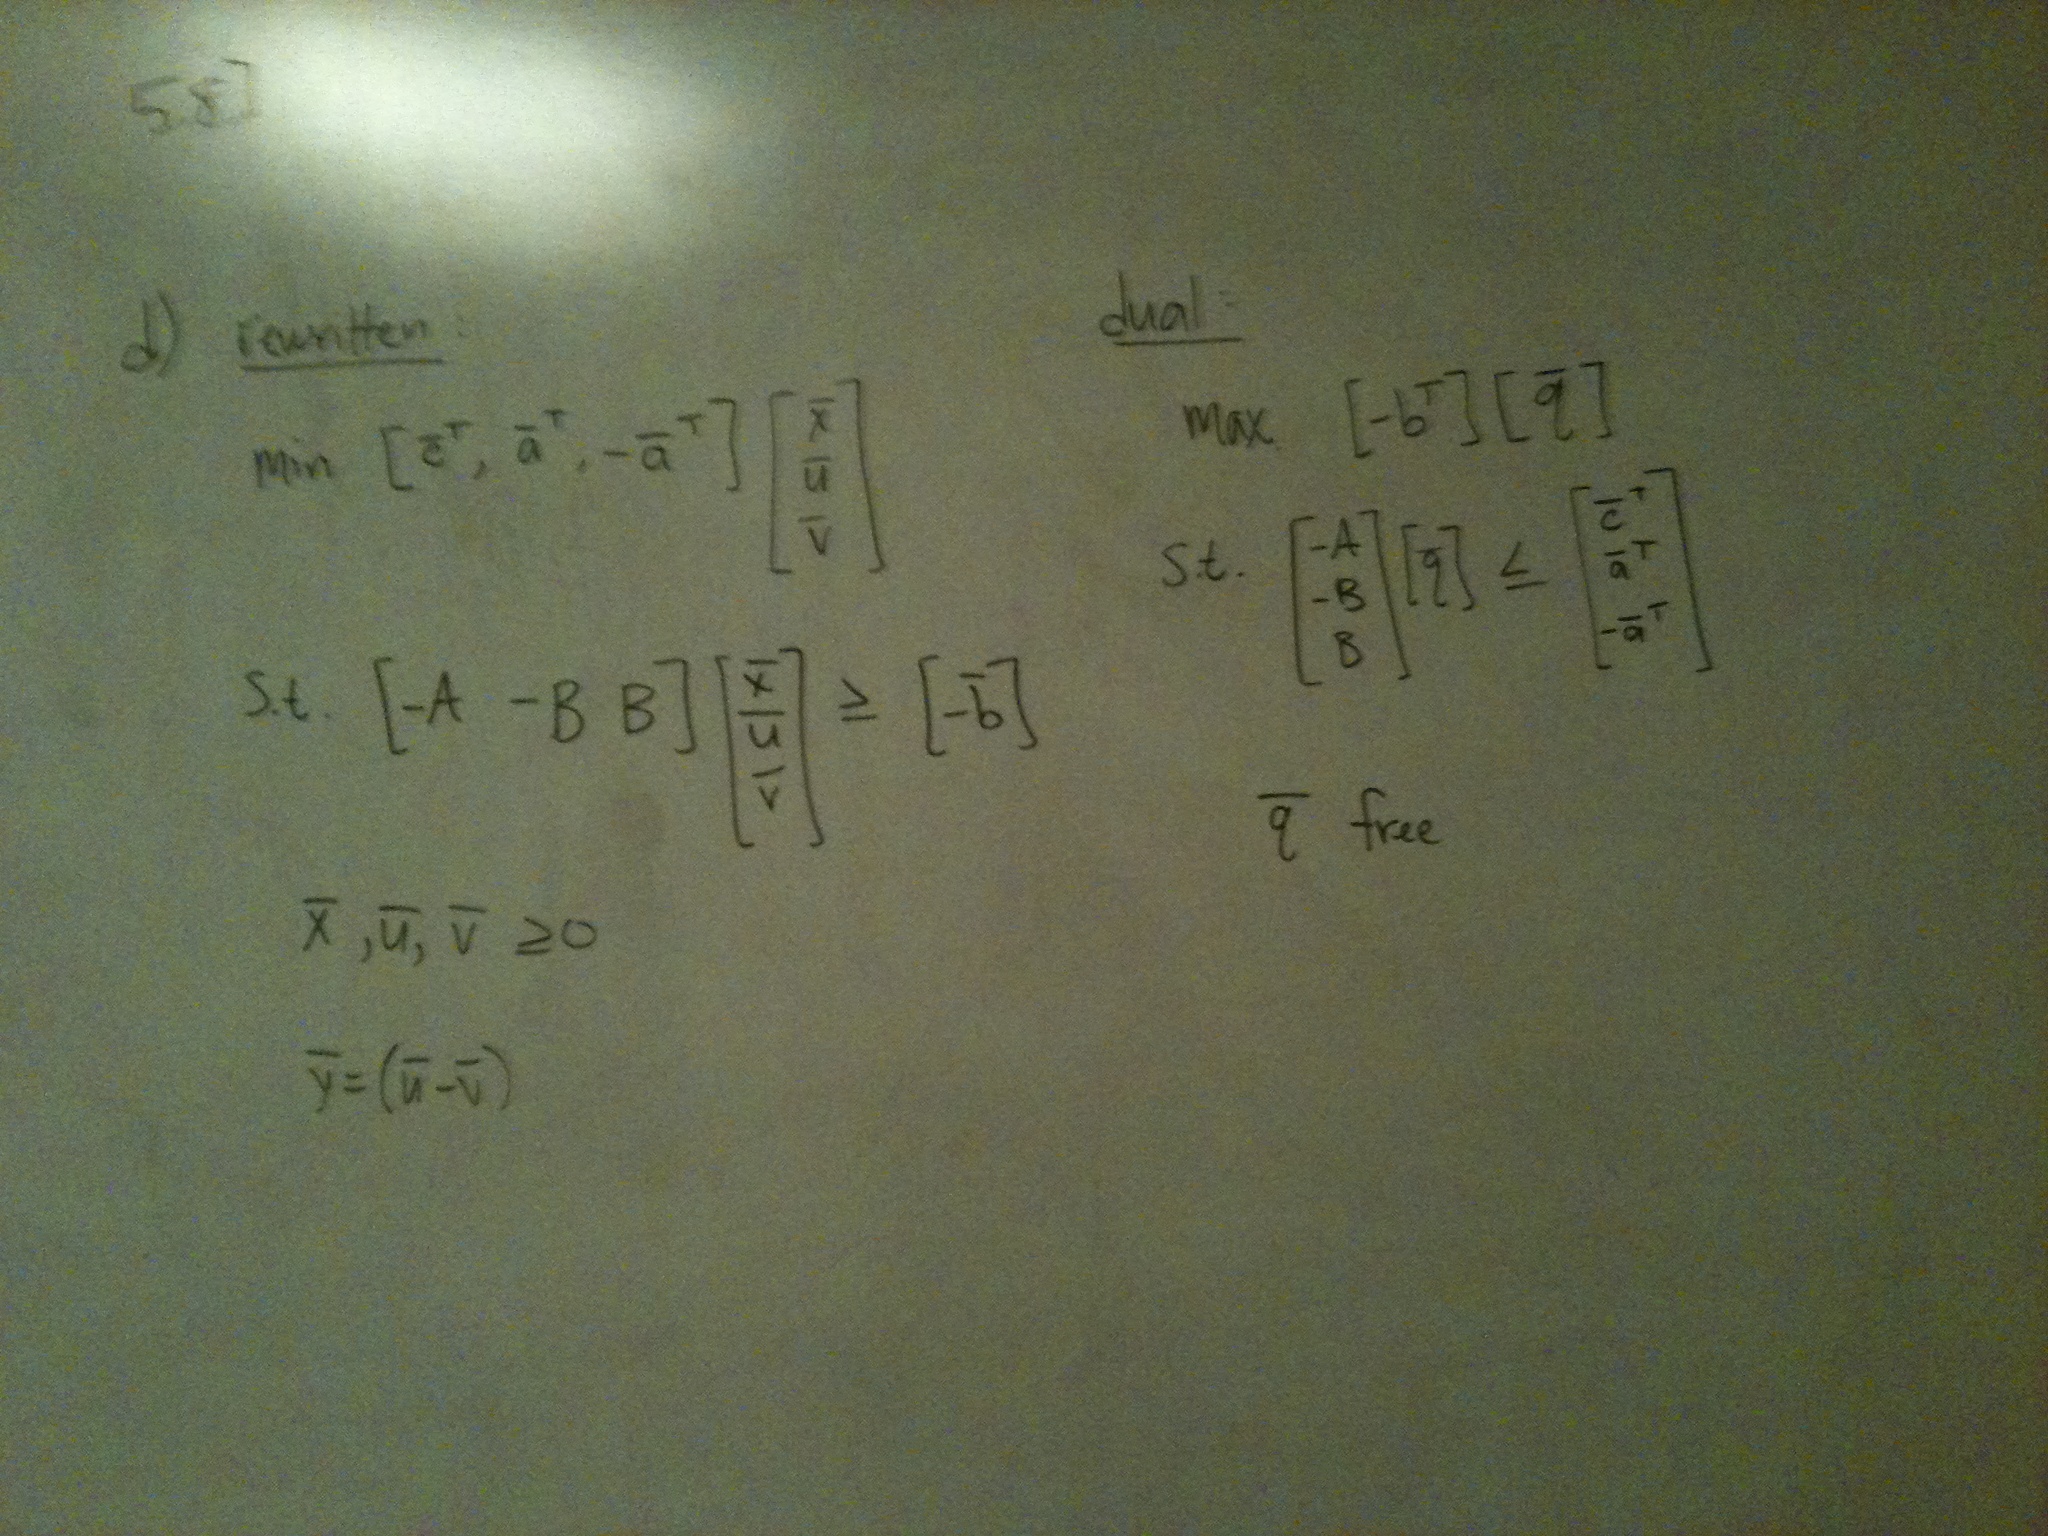 5.8]
d) rewritten:
min [c̄ᵀ, āᵀ, -āᵀ] [x̄ ū v̄]
s.t. [-A -B B] [x̄ ū v̄] ≥ [-b̄]
x̄, ū, v̄ ≥0
ȳ=(ū-v̄)
dual:
max [-bᵀ] [q̄]
s.t. [-A -B B] [q̄] ≤ [c̄ᵀ āᵀ -āᵀ]
q̄ free